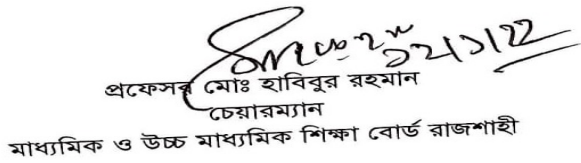 ১২/১/২২
প্রফেসর মোঃ হাবিবুর রহমান
চেয়ারম্যান
মাধ্যমিক ও উচ্চ মাধ্যমিক শিক্ষা বোর্ড রাজশাহী